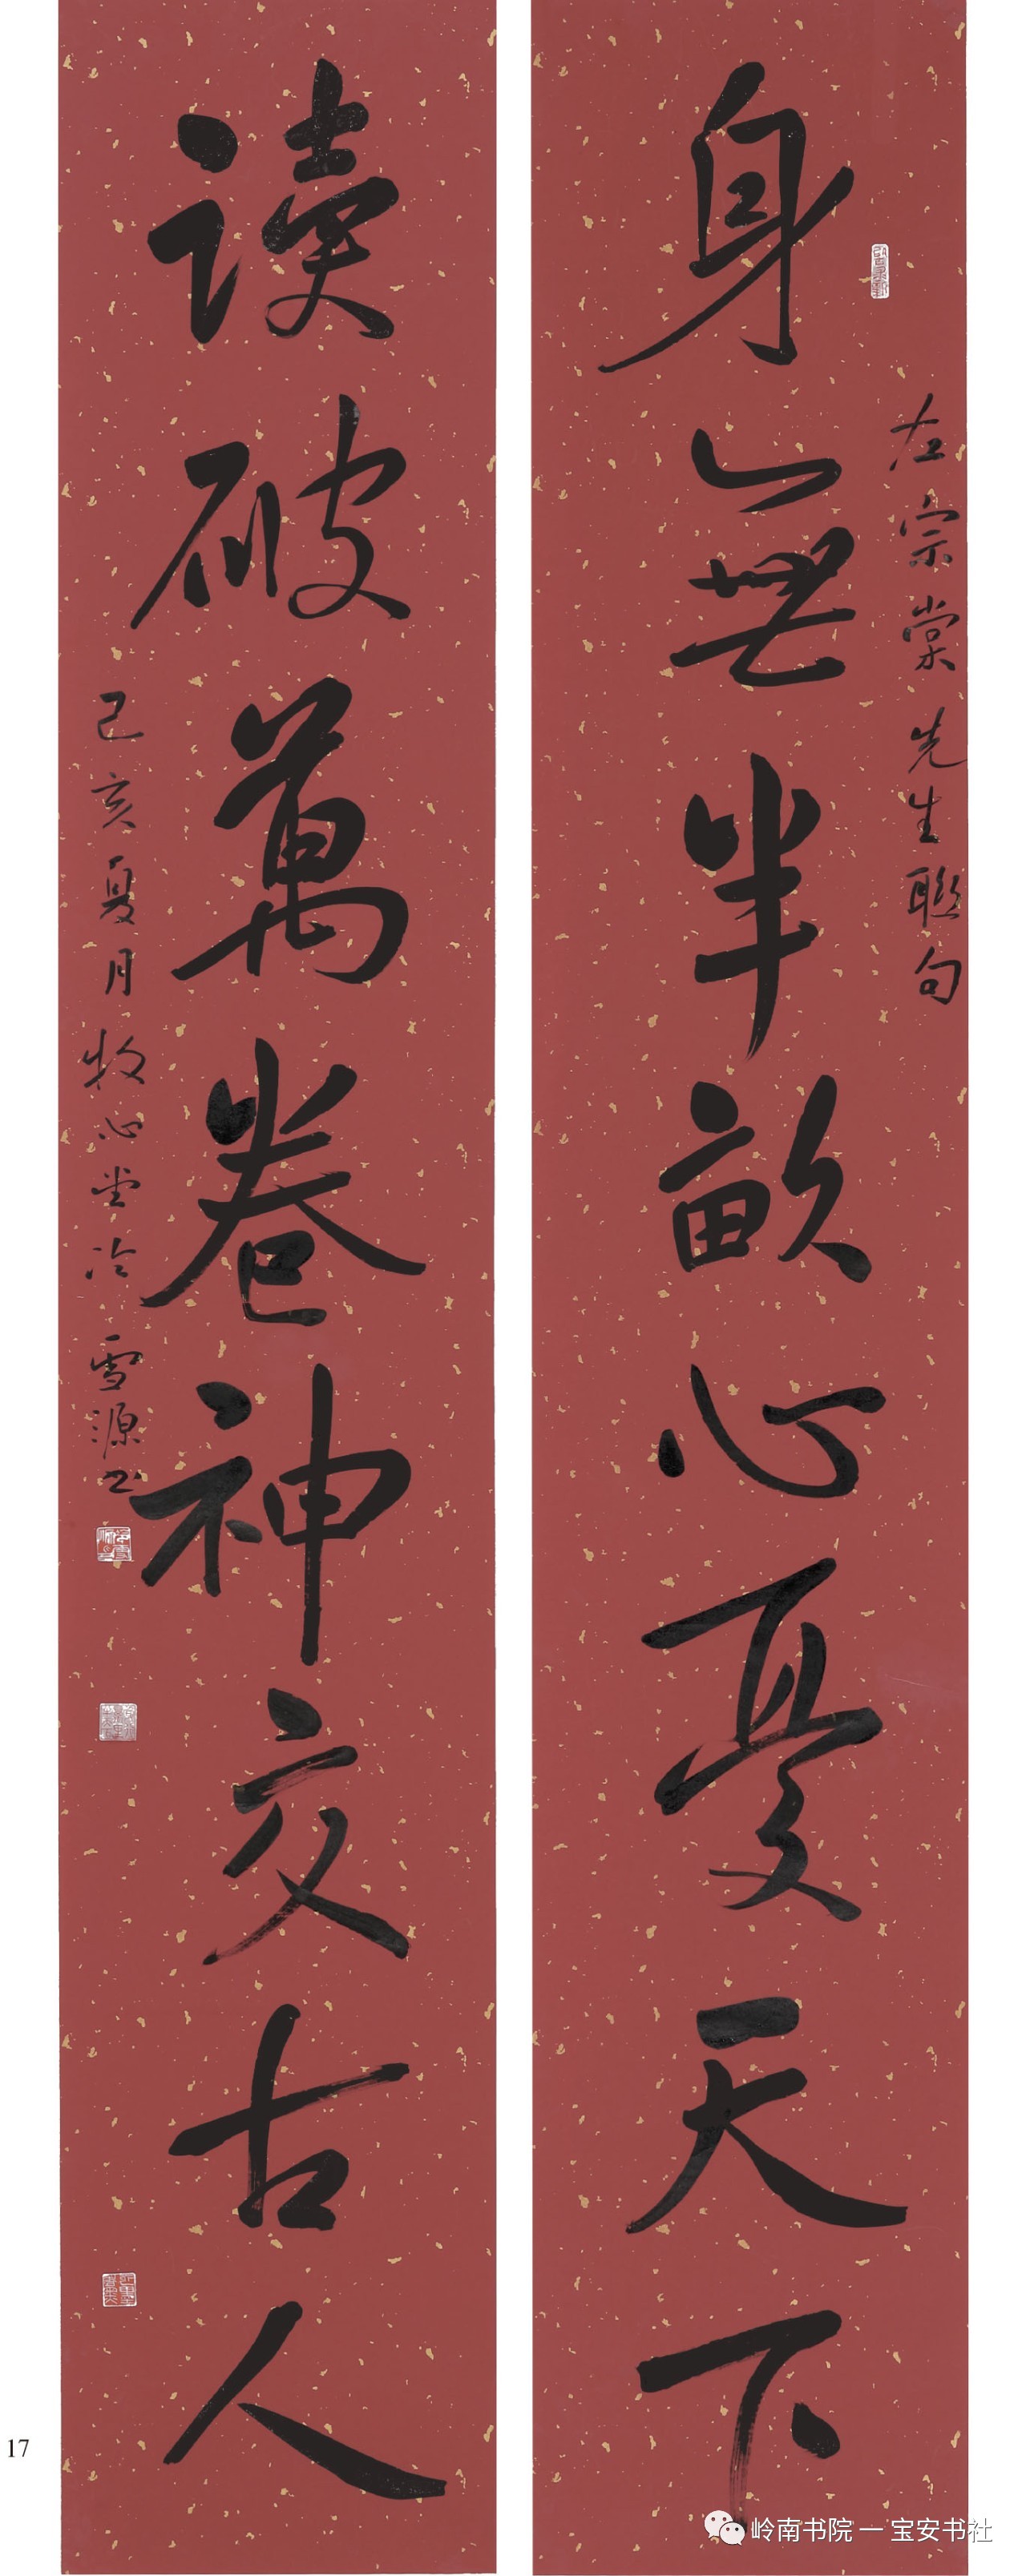 左宗棠先生联句
身無半畝心憂天下
读破萬卷神交古人
己亥夏月牧心堂冷雪源书
17
岭南书院一宝安书社